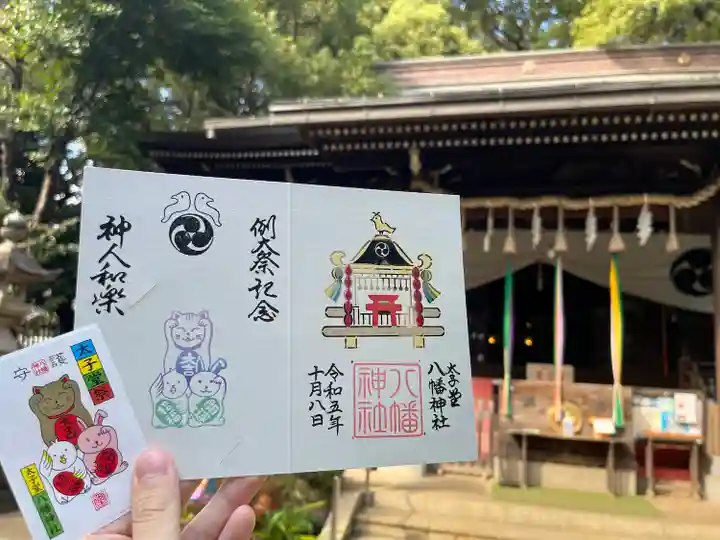 例大祭記念
神人和樂
太子堂
八幡神社
八幡
神社
令和五年
十月八日
護
守
太子堂